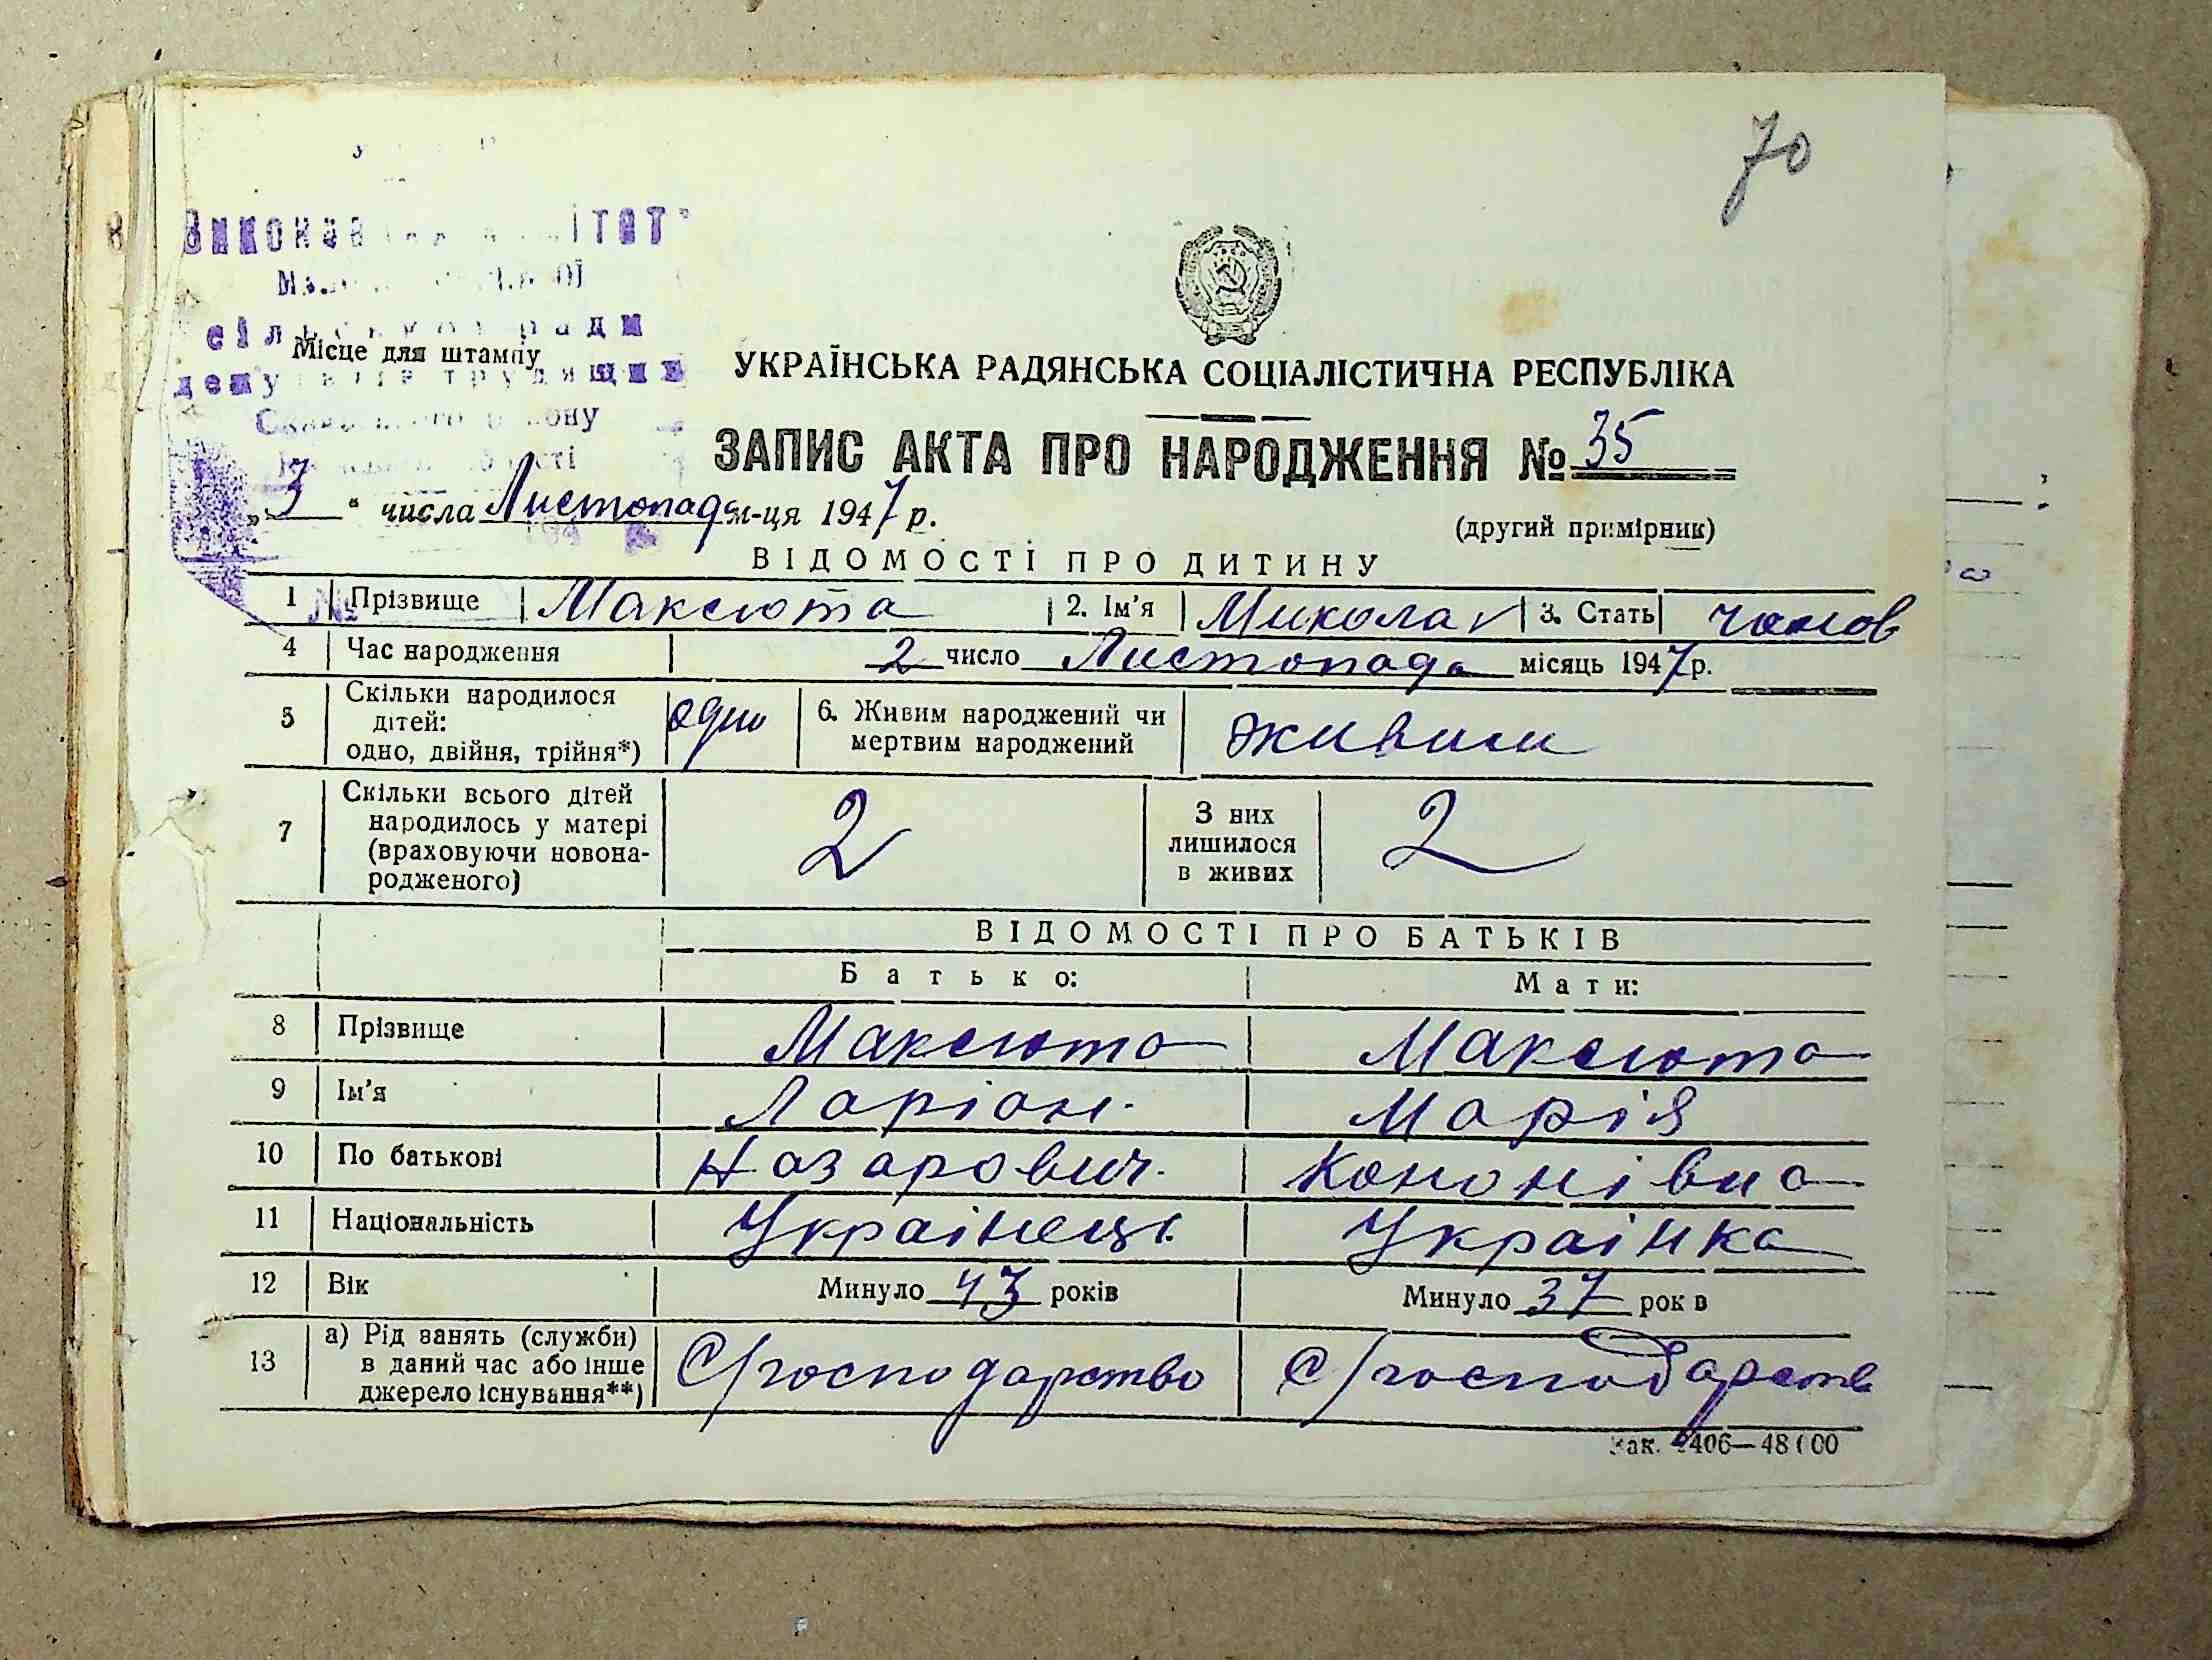 70
сільської ради
Місце для штампу
УКРАЇНСЬКА РАДЯНСЬКА СОЦІАЛІСТИЧНА РЕСПУБЛІКА
ЗАПИС АКТА ПРО НАРОДЖЕННЯ № 35
„3“ числа Листопада м-ця 1947 р.
(другий примірник)
ВІДОМОСТІ ПРО ДИТИНУ
1 Прізвище Максюта 2. Ім'я Микола 3. Стать чолов
4 Час народження 2 число Листопада місяць 1947 р.
5 Скільки народилося дітей: одно, двійня, трійня*) одно 6. Живим народжений чи мертвим народжений живим
7 Скільки всього дітей народилось у матері (враховуючи новонародженого) 2 З них лишилося в живих 2
ВІДОМОСТІ ПРО БАТЬКІВ
Батько: Мати:
8 Прізвище Максюта Максюта
9 Ім'я Ларіон. Марія
10 По батькові Назарович. Кононівна
11 Національність Українець Українка
12 Вік Минуло 43 років Минуло 37 рок в
13 а) Рід занять (служби) в даний час або інше джерело існування**) С/господарство С/господарств